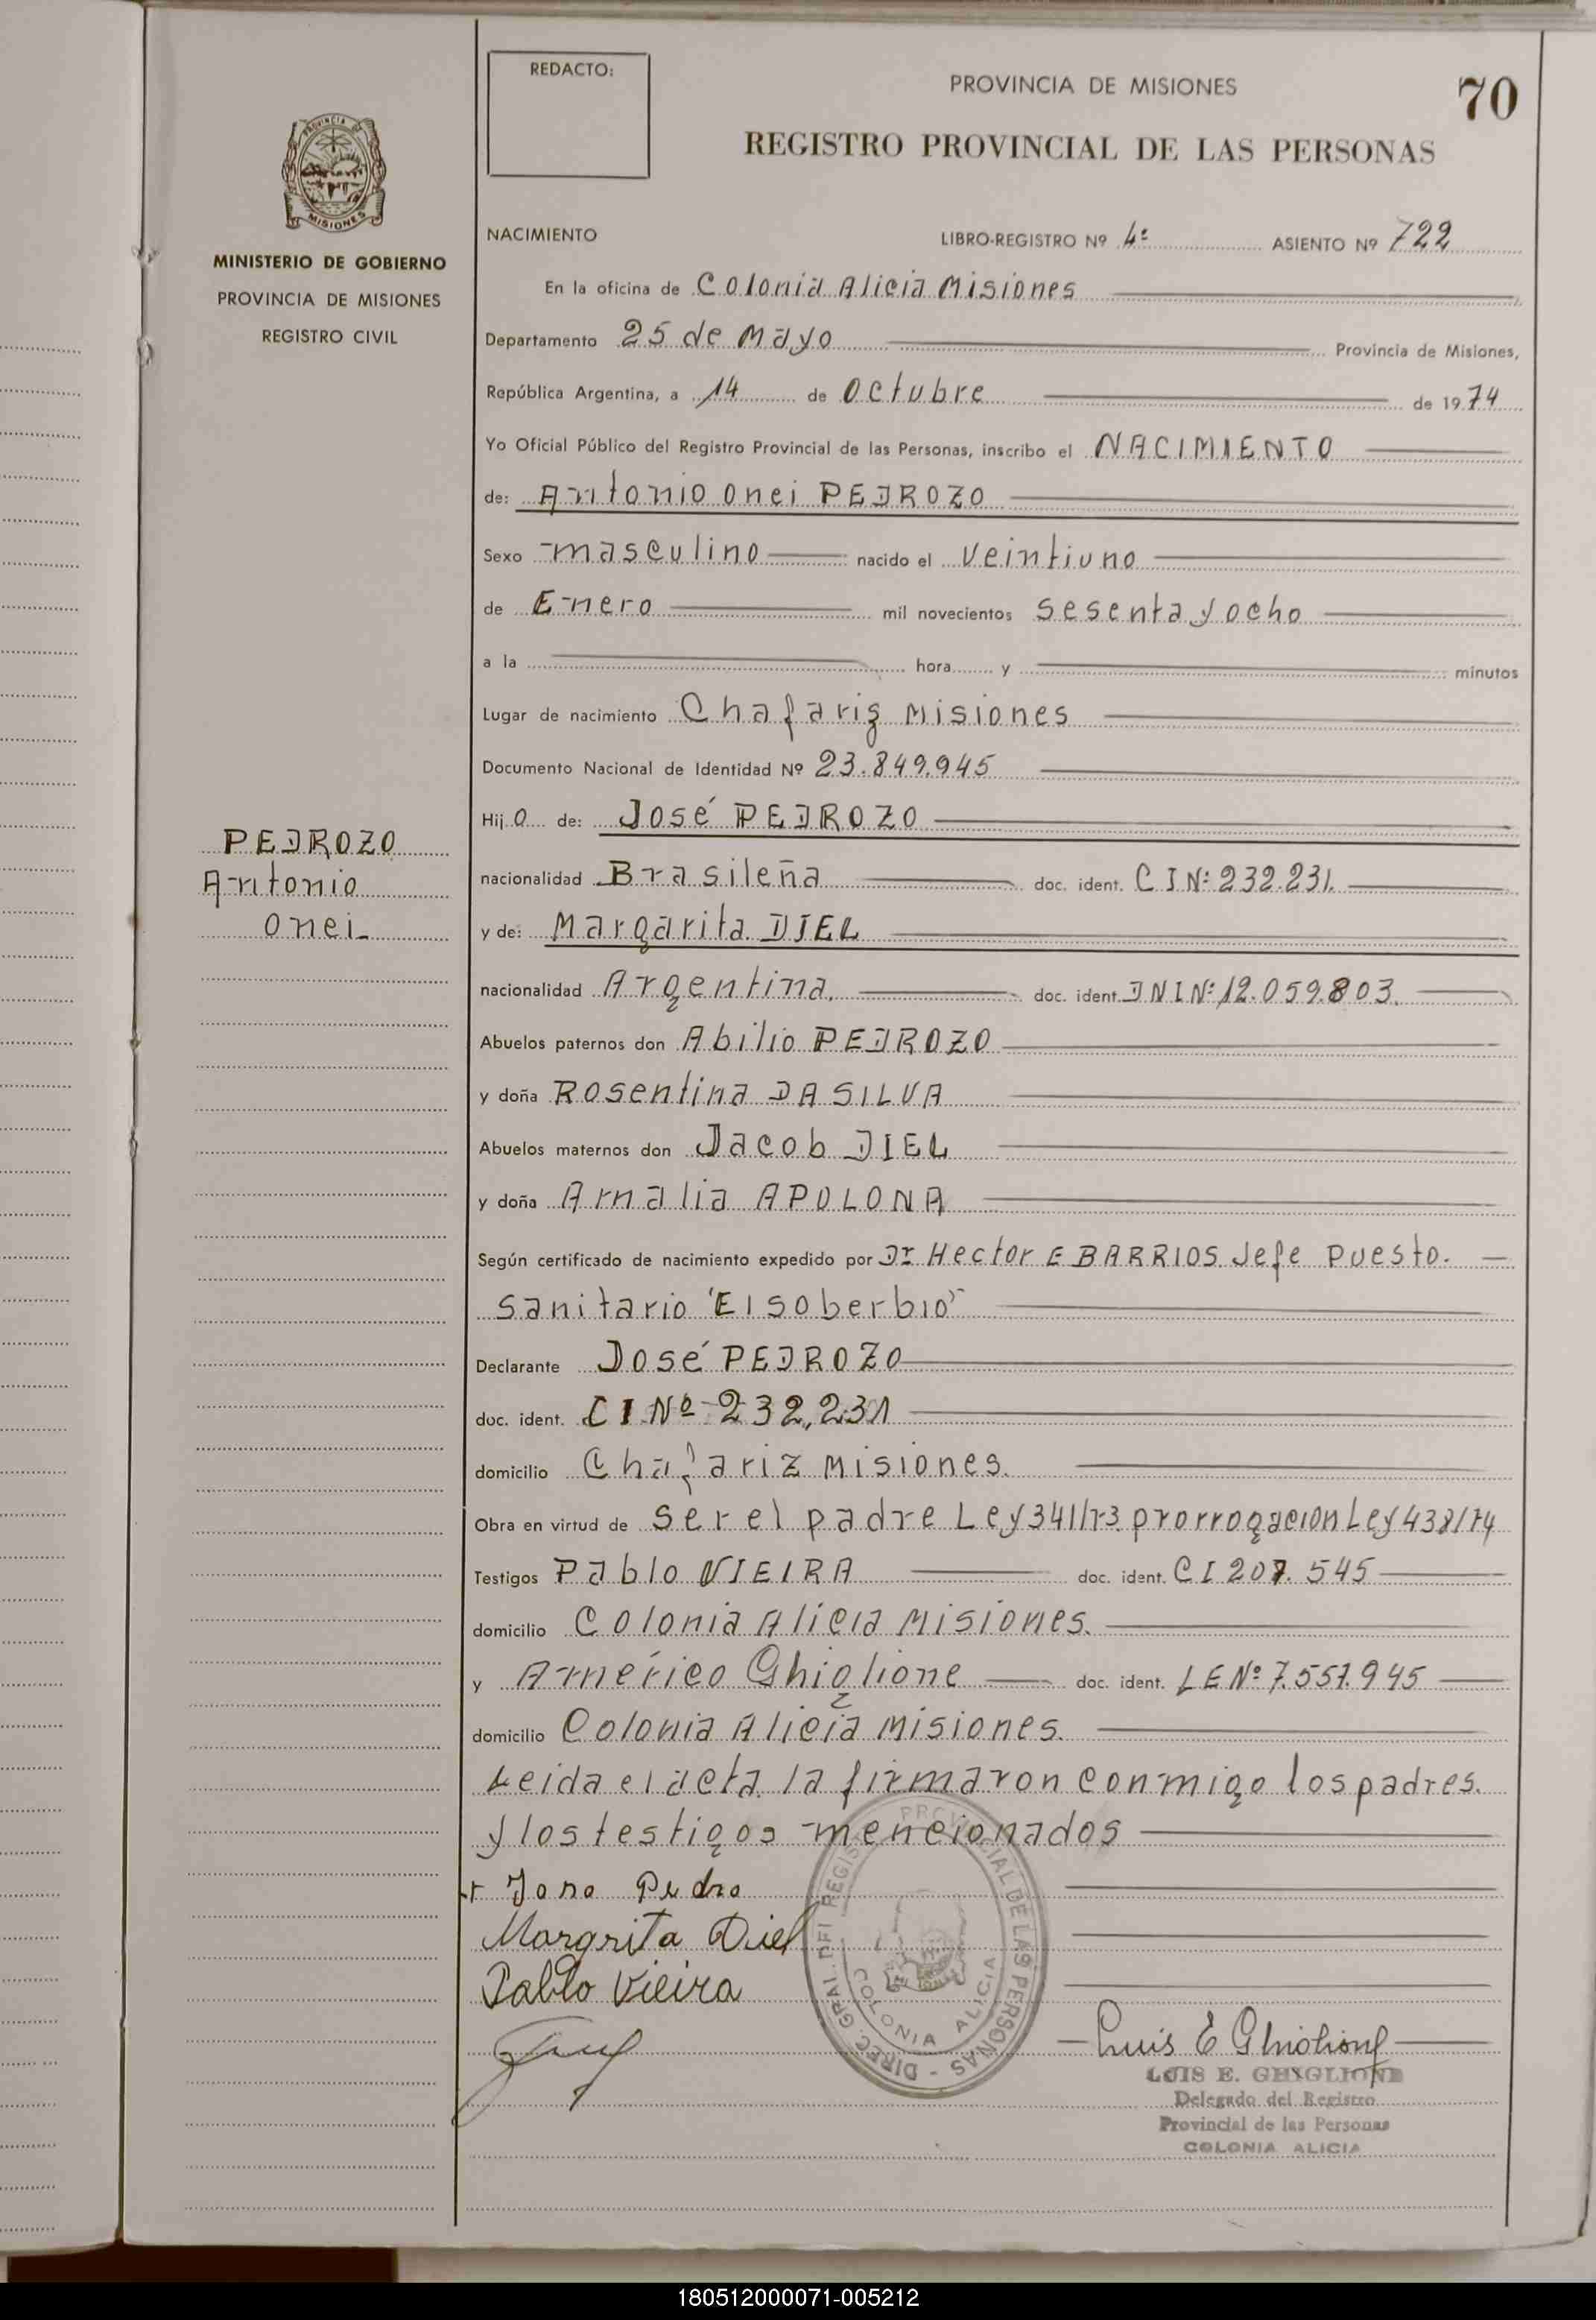 REDACTO:
PROVINCIA DE MISIONES
70
REGISTRO PROVINCIAL DE LAS PERSONAS
PROVINCIA DE
MISIONES
MINISTERIO DE GOBIERNO
PROVINCIA DE MISIONES
REGISTRO CIVIL
NACIMIENTO LIBRO-REGISTRO Nº 4º ASIENTO Nº 722
En la oficina de Colonia Alicia Misiones
Departamento 25 de Mayo Provincia de Misiones,
República Argentina, a 14 de Octubre de 1974
Yo Oficial Público del Registro Provincial de las Personas, inscribo el NACIMIENTO
de: Antonio Onei PEDROZO
Sexo masculino nacido el veintiuno
de Enero mil novecientos sesenta y ocho
a la hora y minutos
Lugar de nacimiento Chafariz Misiones
Documento Nacional de Identidad Nº 23.849.945
Hijo de: José PEDROZO
PEDROZO
Antonio
Onei
nacionalidad Brasileña doc. ident. CI Nº 232.231.
y de: Margarita DIEL
nacionalidad Argentina. doc. ident. DNI Nº 12.059.803.
Abuelos paternos don Abilio PEDROZO
y doña Rosentina DA SILVA
Abuelos maternos don Jacob DIEL
y doña Amalia APOLONA
Según certificado de nacimiento expedido por Dr Hector E BARRIOS Jefe Puesto.
Sanitario "El Soberbio"
Declarante José PEDROZO
doc. ident. CI Nº 232,231
domicilio Chafariz Misiones.
Obra en virtud de ser el padre Ley 341/73 prorrogacion Ley 438/74
Testigos Pablo VIEIRA doc. ident. CI 207.545
domicilio Colonia Alicia Misiones.
y Américo Ghiglione doc. ident. LE Nº 7.557.945
domicilio Colonia Alicia Misiones.
Leida el acta la firmaron conmigo los padres.
y los testigos mencionados
Margrita Diel
Pablo Vieira
DIREC. GRAL. DEL REGISTRO PROVINCIAL DE LAS PERSONAS -
COLONIA ALICIA
Luis E Ghiglione
LUIS E. GHIGLIONE
Delegado del Registro
Provincial de las Personas
COLONIA ALICIA
180512000071-005212